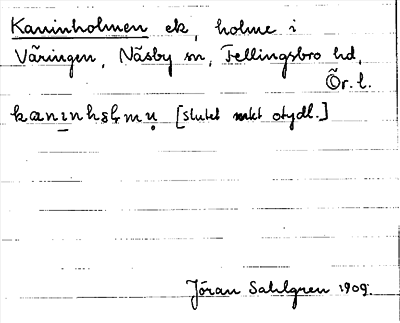 Kaninholmen ek, holme i
Väringen, Näsby sn, Fellingsbro hd,
Ör. l.
kanınhɷl̥mu̥ [slutet mkt otydl.]
Jöran Sahlgren 1909.